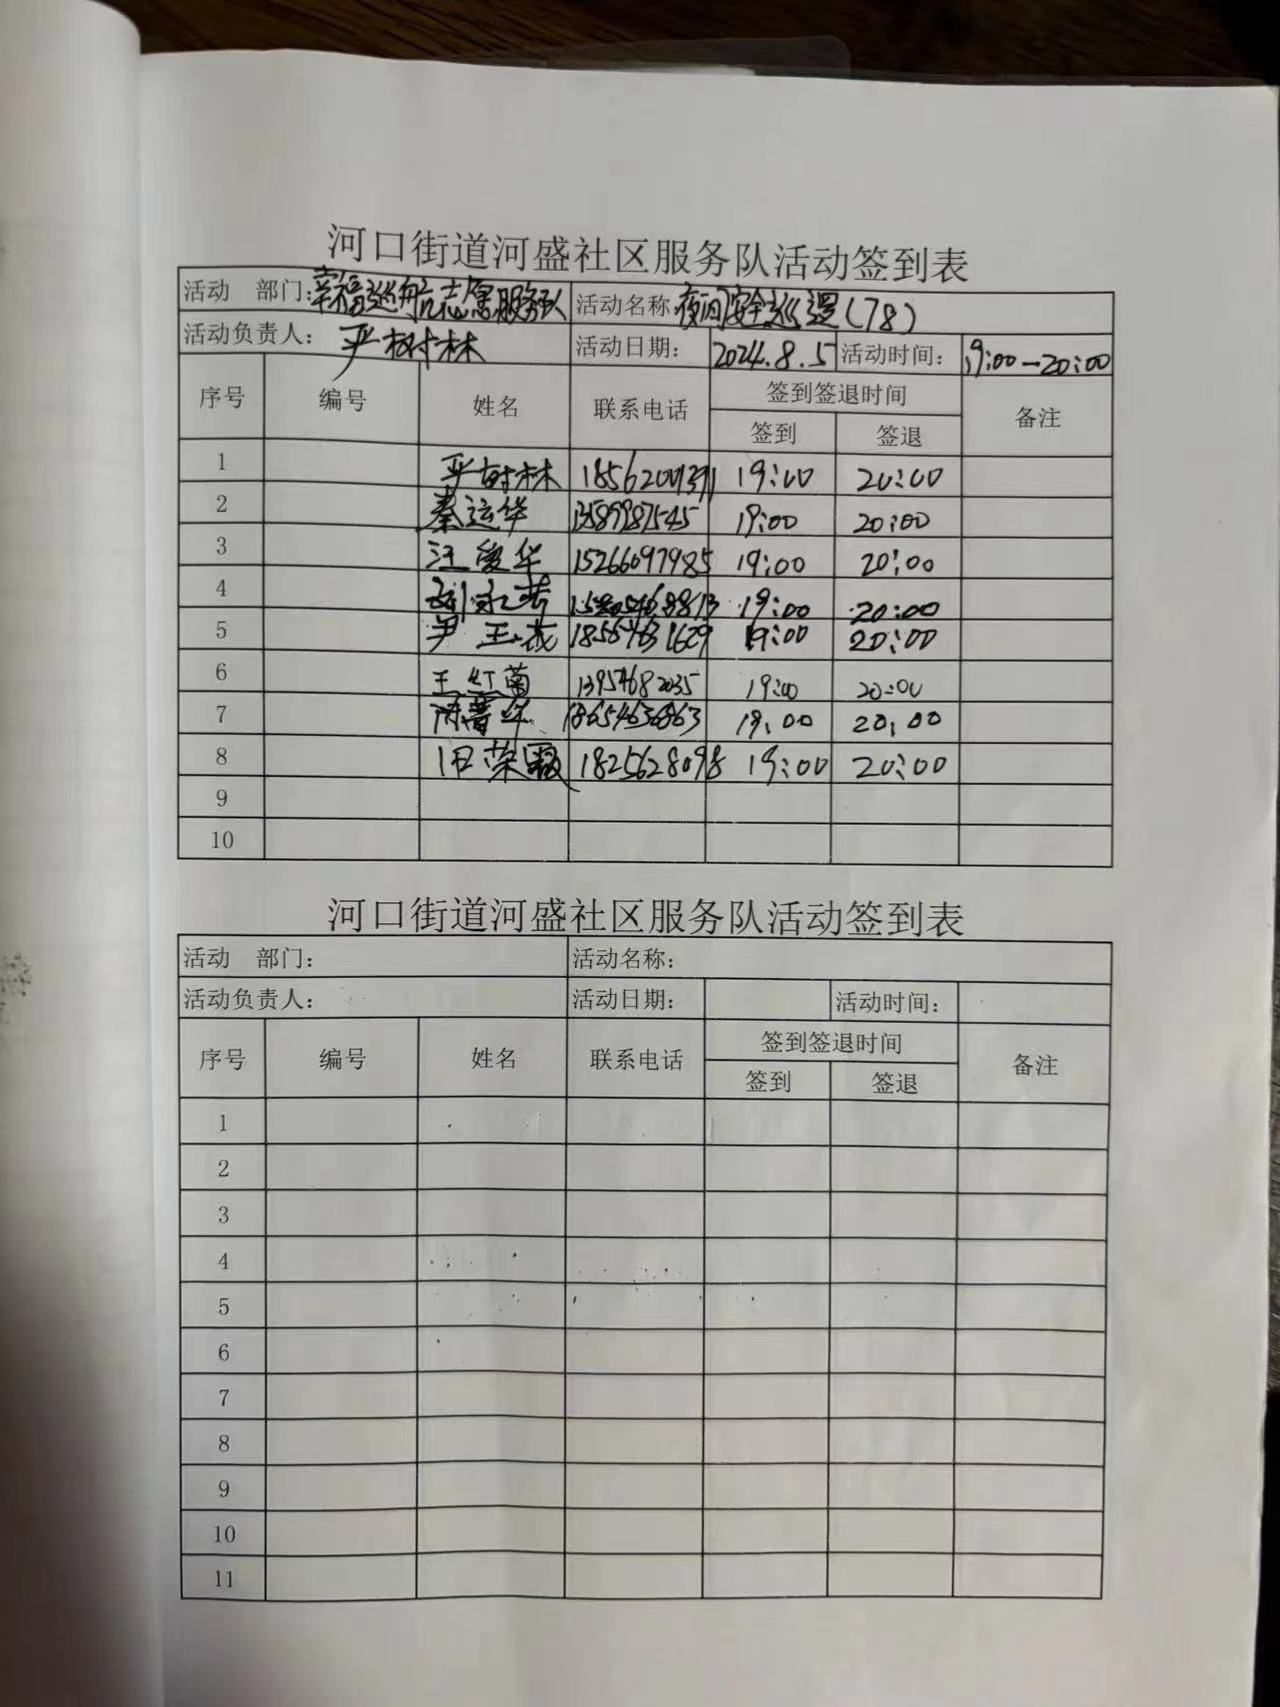 河口街道河盛社区服务队活动签到表
活动 部门：幸福巡航志愿服务队 活动名称：夜间安全巡逻(78)
活动负责人：严树林 活动日期：2024.8.5 活动时间：19:00—20:00
序号 编号 姓名 联系电话 签到签退时间 备注
签到 签退
1 严树林 19:00 20:00
2 秦运华 13589987545 19:00 20:00
3 汪爱华 15266097985 19:00 20:00
4 19:00 20:00
5 尹玉 18554631629 19:00 20:00
6 王红菊 13954682035 19:00 20:00
7 18654636863 19:00 20:00
8 1825628098 19:00 20:00
9
10
河口街道河盛社区服务队活动签到表
活动 部门： 活动名称：
活动负责人： 活动日期： 活动时间：
序号 编号 姓名 联系电话 签到签退时间 备注
签到 签退
1
2
3
4
5
6
7
8
9
10
11